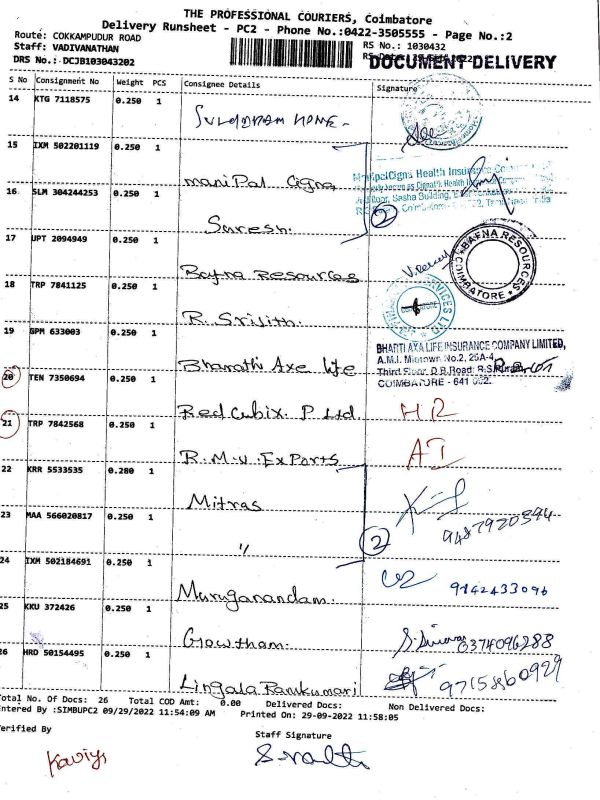 THE PROFESSIONAL COURIERS, Coimbatore
Delivery Runsheet - PC2 - Phone No.:0422-3505555 - Page No.:2
Route: COKKAMPUDUR ROAD
RS No.: 1030432
Staff: VADIVANATHAN
DOCUMENT DELIVERY
DRS No.: DCJB103043202
S No Consignment No Weight PCS Consignee Details Signature
14 KTG 7118575 0.250 1
SULOORAM HOME-
15 IXM 502201119 0.250 1
ManipalCigna Health Insurance
manipal cigna
16 SLM 304244253 0.250 1
2
Suresh.
17 UPT 2094949 0.250 1
BAFNA RESOURCES
COIMBATORE
Bafna Resources
18 TRP 7841125 0.250 1
R. Srijith.
19 GPM 633003 0.250 1
BHARTI AXA LIFE INSURANCE COMPANY LIMITED,
A.M.I. Midtown No.2, 25A-4
Third Floor, D.B.Road, R.S.Puram
COIMBATORE - 641 002.
Bharathi Axe life
20 TEN 7350694 0.250 1
Red Cubix. P Ltd HR
21 TRP 7842568 0.250 1
R.M.V. Exports AT
22 KRR 5533535 0.280 1
Mitras
23 MAA 566020817 0.250 1
9487920394
〃 2
24 IXM 502184691 0.250 1
9842433096
Muruganandam.
25 KKU 372426 0.250 1
Gowtham. 0374096288
26 HRD 50154495 0.250 1
Lingala Ramkumari 9715860929
Total No. Of Docs: 26 Total COD Amt: 0.00 Delivered Docs: Non Delivered Docs:
Entered By :SIMBUPC2 09/29/2022 11:54:09 AM Printed On: 29-09-2022 11:58:05
Verified By Staff Signature